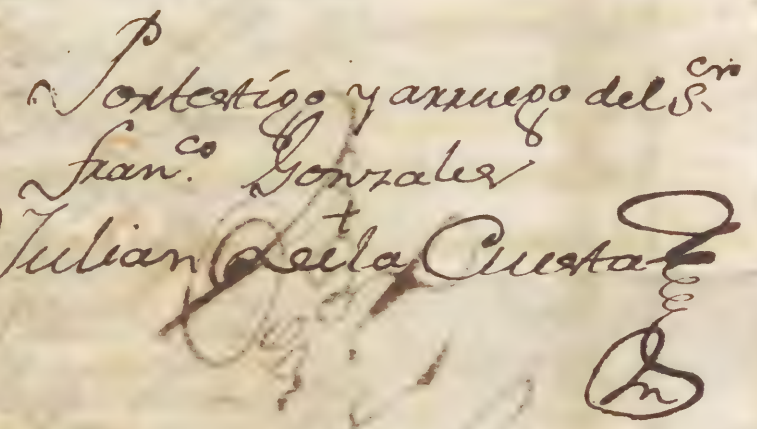 Portestigo y arruego del S.ᶜʳⁿ
Fran.ᶜᵒ Gonzales
Julian de la Cuesta